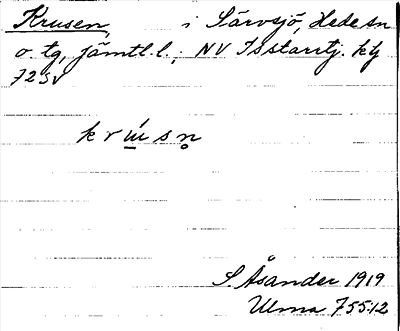 Krusen, i Särvsjö, Hede sn
o. tg, Jämtl. l., NV
72 SV
k r ú̱ s n̥
S. Åsander 1919
Ulma 755:12